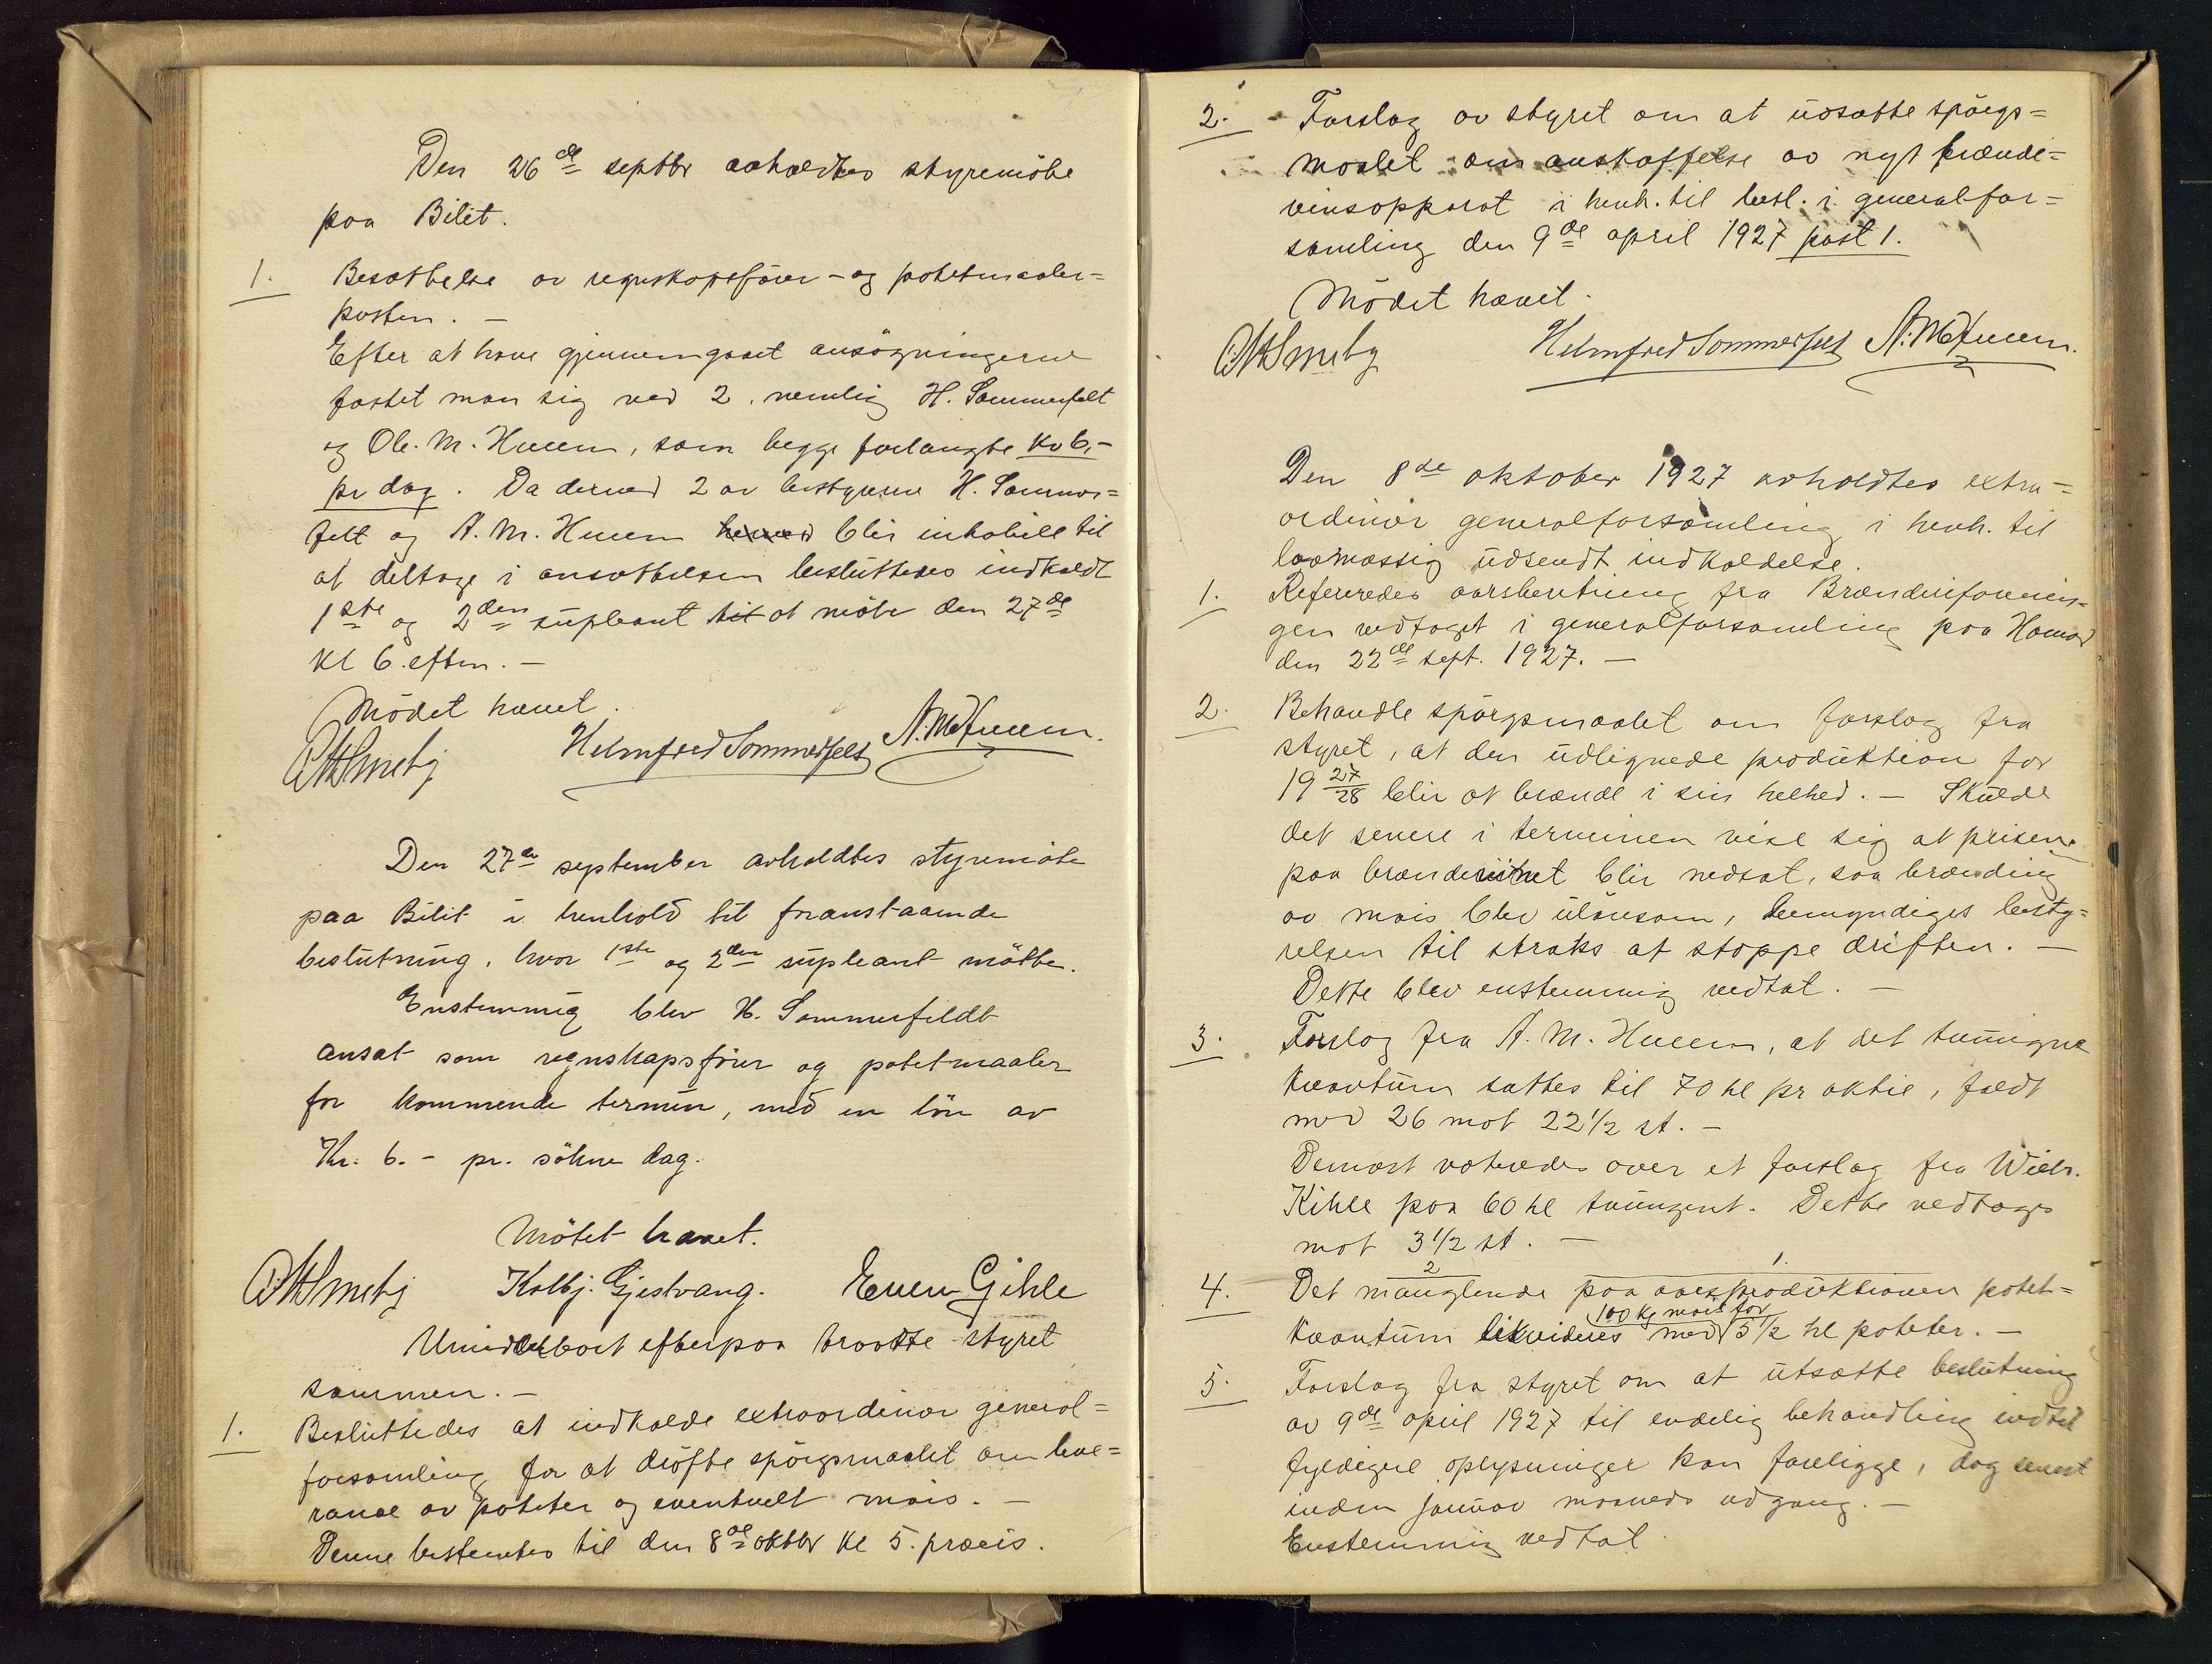 Den 26de septbr avholdtes styremöte
paa Bilit.
1. Besættelse av regnskapsförer- og potetmaaler=
posten. -
Efter at have gjennemgaaet ansögningerne
fæstet man sig ved 2, nemlig H. Sommerfelt
og Ole. M. Hueen, som begge forlangte Kr 6,-
pr dag. Da derved 2 av bestyrerne H. Sommer=
felt og A. M. Hueen blir inhabile til
at deltage i ansættelsen besluttedes indkaldt
1ste og 2den supleant til at möte den 27de
Kl 6. eftm. -
Mödet hævet.
Helmfred Sommerfelt A. M. Hueen.
Den 27de september avholdtes styremöte
paa Bilit i henhold til foranstaaende
beslutning, hvor 1ste og 2den supleant mötte.
Enstemmig blev H. Sommerfeldt
ansat som regnskapsförer og potetmaaler
for kommende termin, med en lön av
Kr. 6.- pr. sökne dag.
Mötet hævet.
Kolbj. Gjestvang. Even Gihle
Umiddelbart efterpaa traadte styret
sammen. -
1. Besluttedes at indkalde extraordinær general=
forsamling for at dröfte spörgsmaalet om leve=
ranse av poteter og eventuelt mais. -
Denne bestemtes til den 8de oktbr Kl 5. præcis.
2. Forslag av styret om at udsætte spörgs=
maalet om anskaffelse av nyt brænde=
vinsapparat i henh. til besl. i generalfor=
samling den 9de april 1927 post 1.
Mödet hævet.
Helmfred Sommerfelt A. M. Hueen.
Den 8de oktober 1927 avholdtes extra=
ordinær generalforsamling i henh. til
lovmæssig udsendt indkaldelse.
1. Refereredes aarsberetning fra Brænderiforenin=
gen vedtaget i generalforsamling paa Hamar
den 22de sept. 1927. -
2. Behandle spörgsmaalet om forslag fra
styret, at den udlignede produktion for
19 27/28 blir at brænde i sin helhed. - Skulde
det senere i terminen vise sig at prisen
paa brænderiet blir nedsat, saa brænding
av mais blev ulönsom, bemyndiges besty=
relsen til straks at stoppe driften. -
Dette blev enstemmig vedtat. -
3. Forslag fra A. M. Hueen, at det tvungne
kvantum sættes til 70 hl pr aktie, faldt
med 26 mot 22 1/2 st. -
Dernæst voteredes over et forslag fra Wilh.
Kihle paa 60 hl tvungent. Dette vedtoges
mot 3 1/2 st. -
2 1.
4. Det manglende paa aarsproduktionen potet-
kvantum likvideres med 100 kg mais for 5 1/2 hl poteter. -
5. Forslag fra styret om at utsætte beslutning
av 9de april 1927 til endelig behandling indtil
fyldigere oplysninger kan foreligge, dog senest
inden januar maaneds udgang. -
Enstemmig vedtat